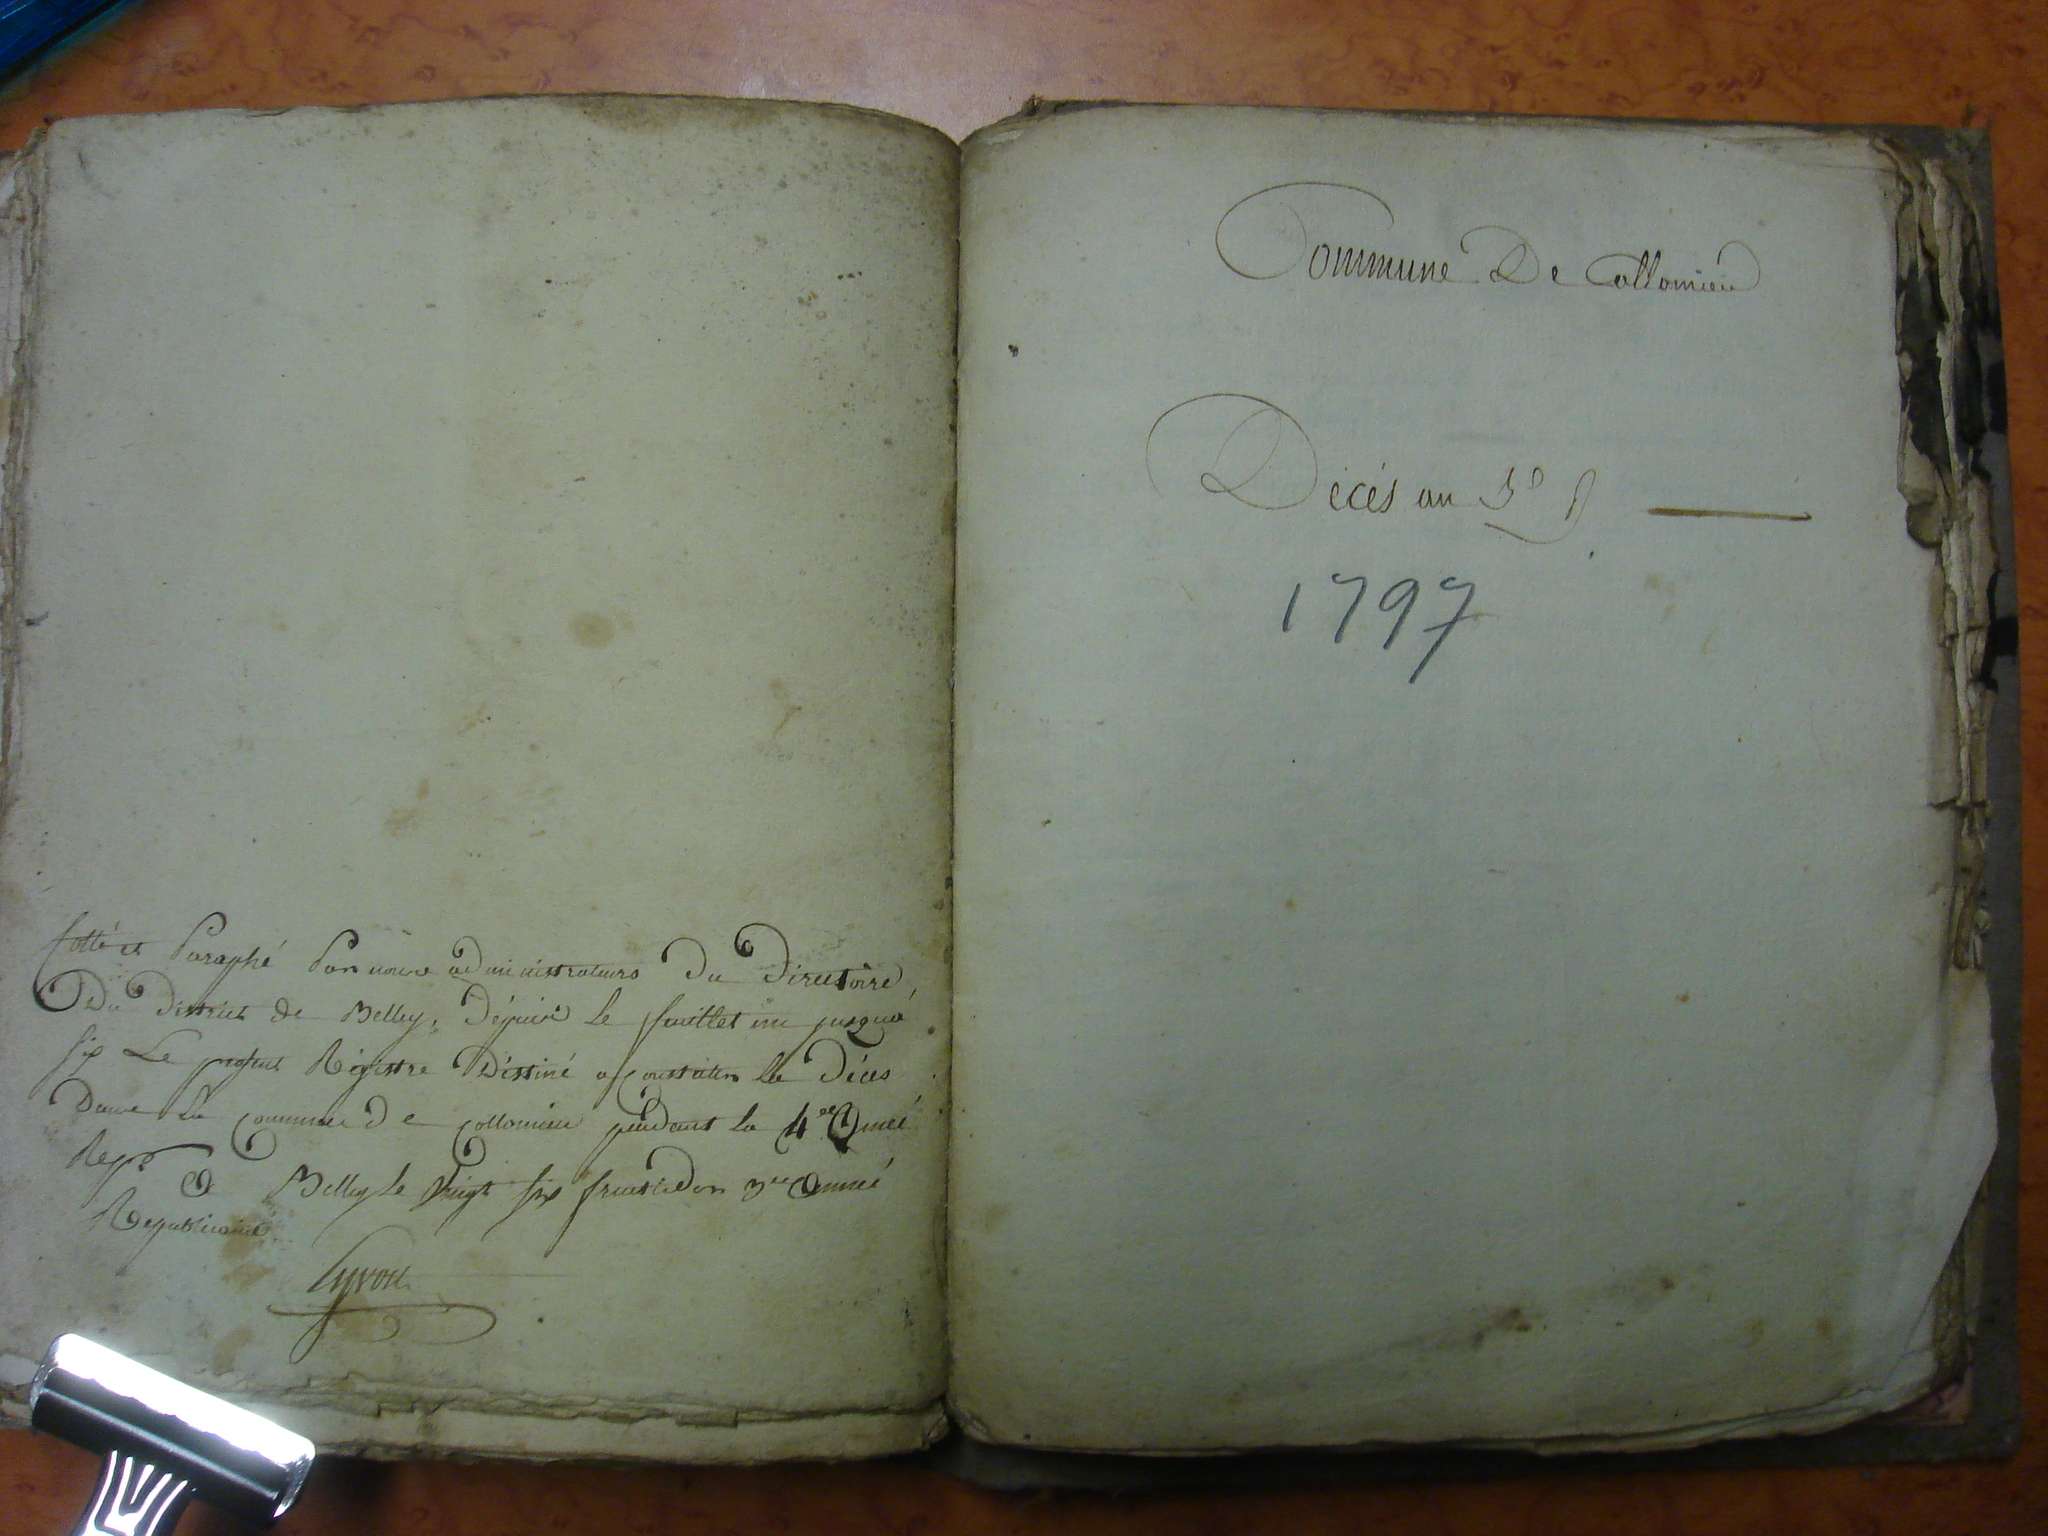 Cotté et Paraphé Par nous administrateurs Du Directoire
Du District de Belley, Dépuis le feuillet un jusqua
six Le présent Régistre Déstiné a constater les Décés
Dans La Commune De Collomieu pendant la 4.ee Année
Rep.e
A Belley le vingt six fructidor 3.ee Année
Républicaine.
Commune De Collomieu
Décés an 5e R
1797